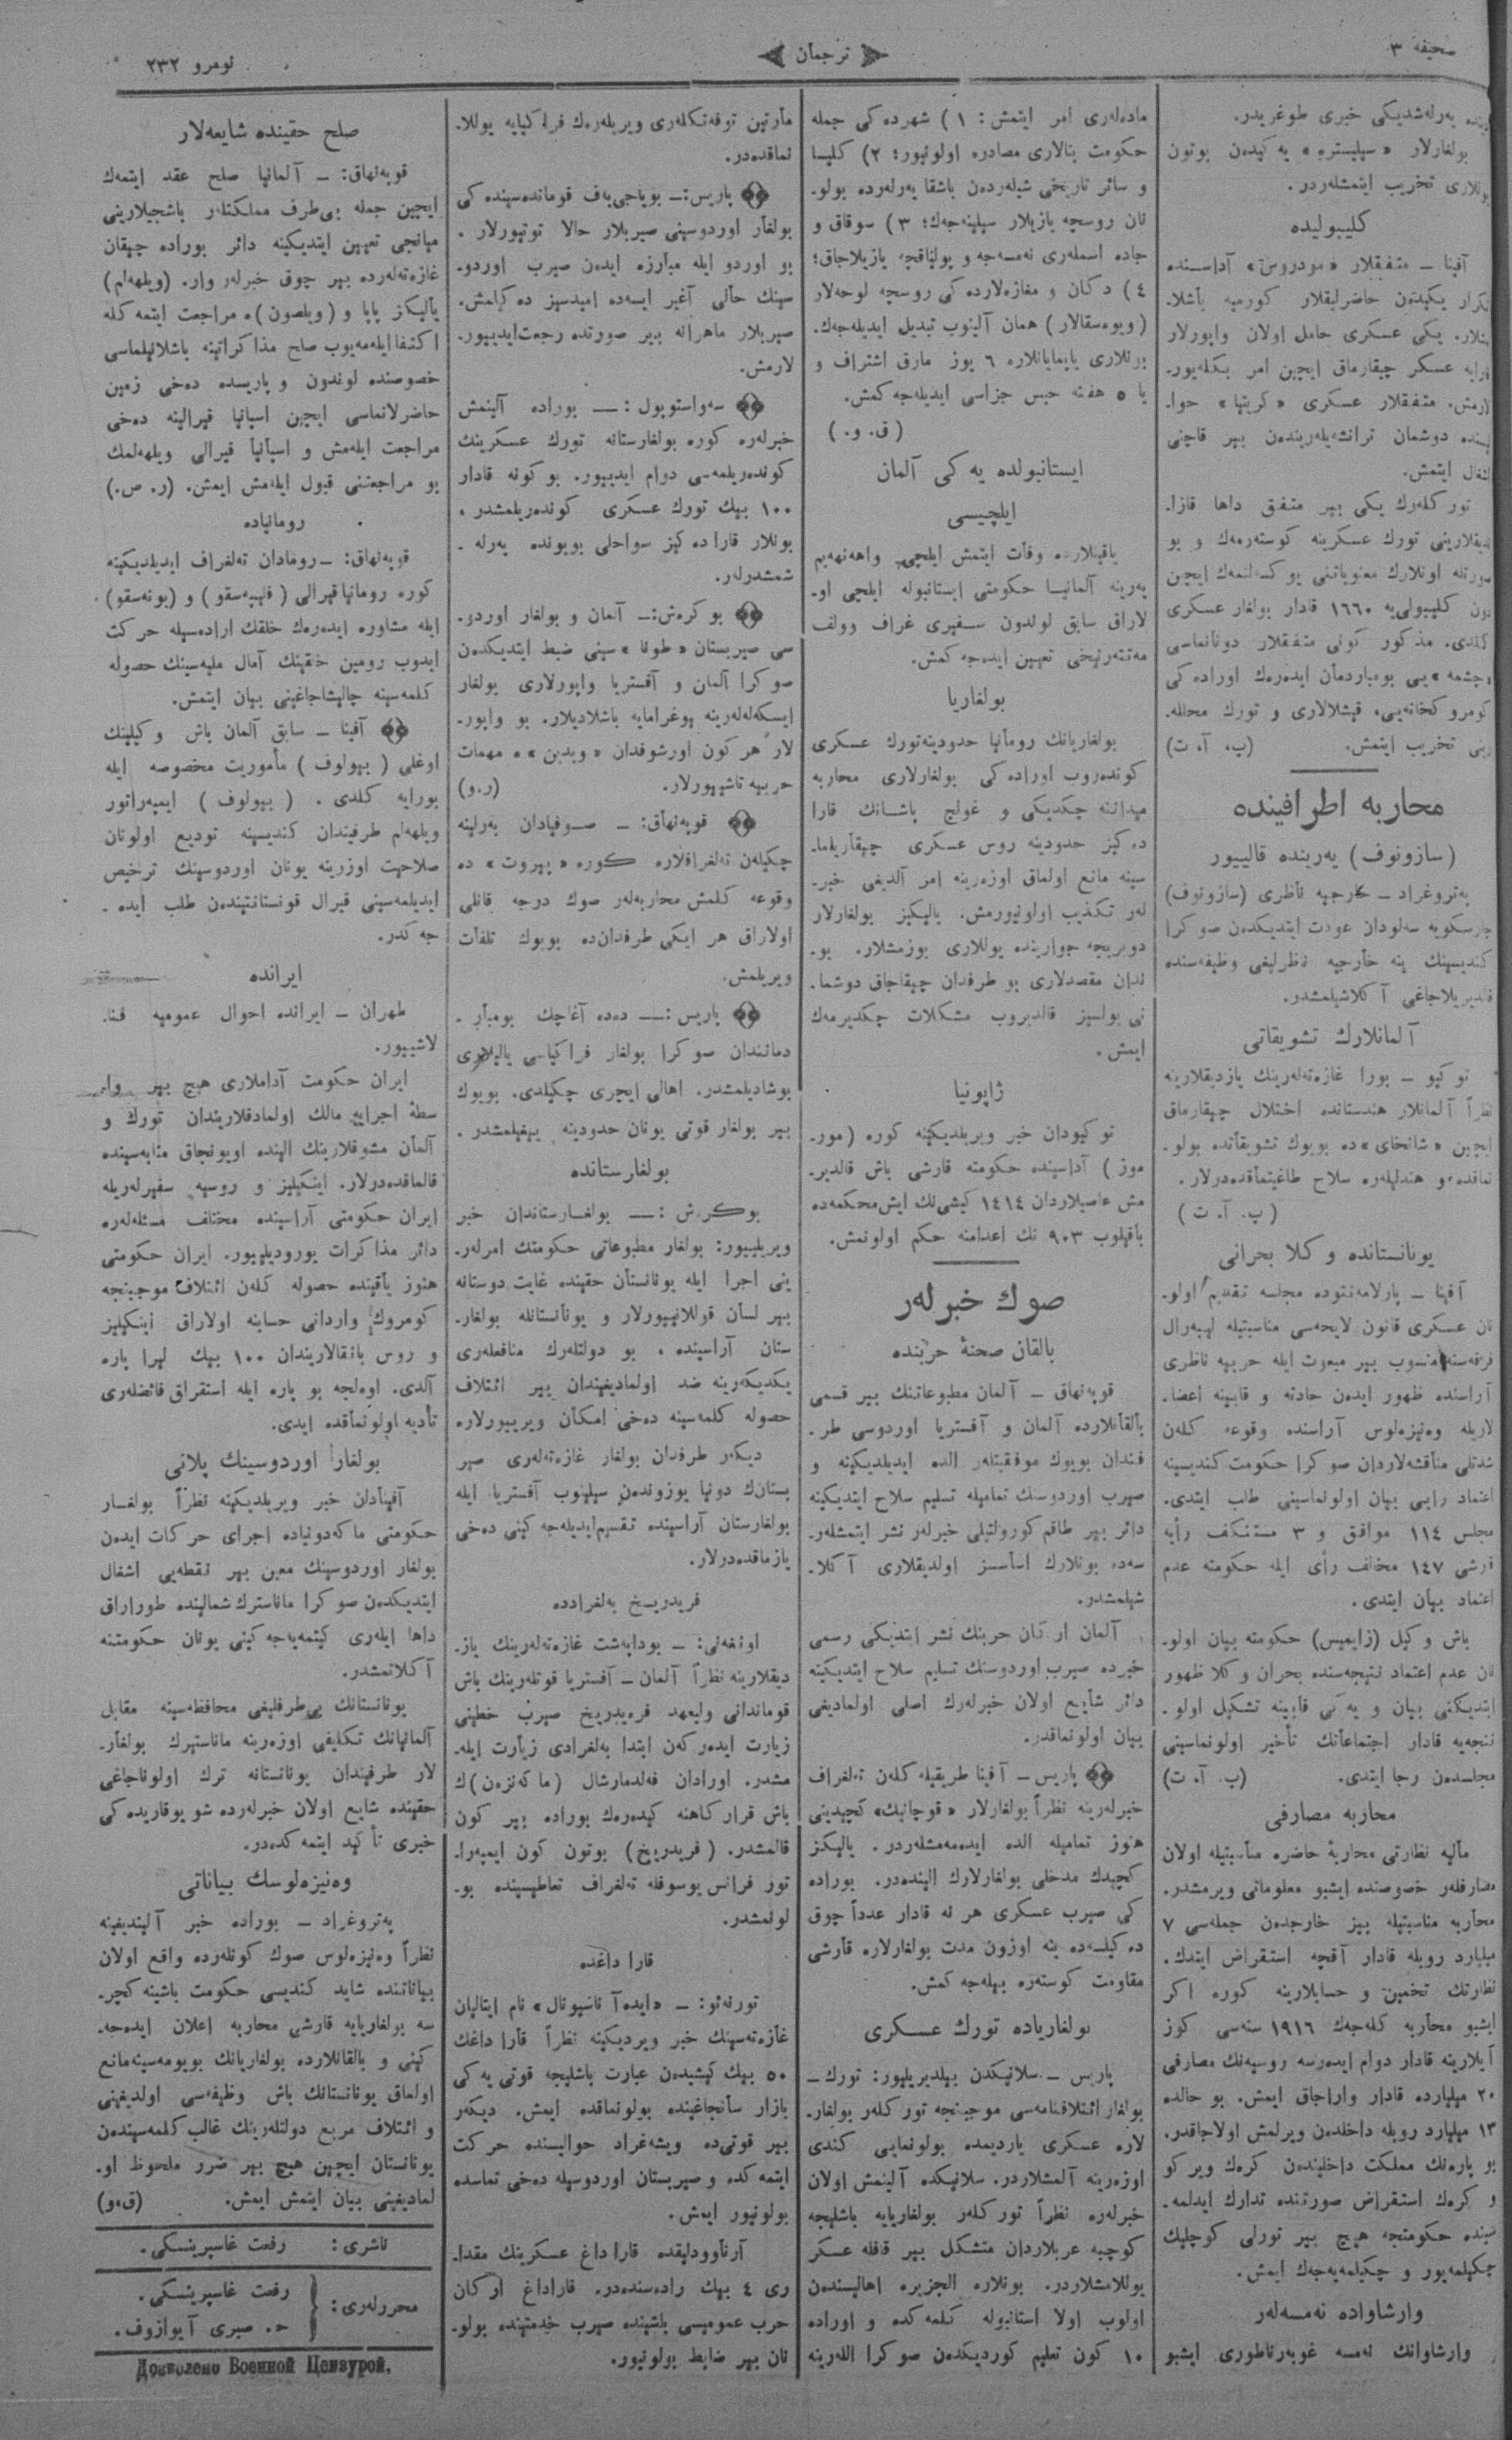 صحیفه ۳
ترجمان
نومرو ۲۳۲
یه‌رله‌شدیکی خبری طوغریدر.
بولغارلار «سیلیستره» یه کیدەن بوتون
یوللاری تخریب ایتمشله‌ردر.
کلیبولیده
آفینا ــ متفقلار «مودروس» آداسنده
تکرار یکیدەن حاضرلیقلار کورمیه باشلا-
مشلار. یکی عسکری حامل اولان واپورلار
قرایه عسکر چیقارماق ایچین امر بکله‌یور-
لارمش. متفقلار عسکری «کریتیا» حوا-
لیسنده دوشمان ترانشه‌یله‌ریندەن بیر قاچنی
اشغال ایتمش.
تورکله‌رك یکی بیر متفق داها قازا-
ندیقلارینی تورك عسکرینه کوسته‌رمه‌ك و بو
صورتله اونلارك معنویاتنی یوکسلتمه‌ك ایچین
دون کلیبولی‌یه ١٦٦٠ قادار بولغار عسکری
کلدی. مذکور کونی متفقلار دونانماسی
«چشمه» یی بومباردمان ایده‌رەك اوراده‌کی
کومروکخانه‌یی، قیشلالاری و تورك محلله-
رینی تخریب ایتمش. (پ، آ، ت)
محاربه اطرافینده
(سازونوف) یه‌رینده قالییور
په‌تروغراد ــ خارجیه ناظری (سازونوف)
چارسکویه سه‌لودان عودت ایتدیکدەن صوکرا
کندیسینك ینه خارجیه ناظرلیغی وظیفه‌سنده
قالدیریلاجاغی آکلاشیلمشدر.
آلمانلارك تشویقاتی
توکیو ــ بورا غازەته‌له‌رینك یازدیقلارینه
نظراً آلمانلار هندستانده اختلال چیقارماق
ایچین «شانخای» ده بویوك تشویقاتده بولو-
نماقده، و هندلیله‌ره سلاح طاغیتماقده‌درلار.
(پ. آ. ت)
یونانستانده وکلا بحرانی
آفینا ــ پارلامه‌نتوده مجلسه تقدیم اولو-
نان عسکری قانون لایحه‌سی مناسبتیله لیبه‌رال
فرقه‌سنه منسوب بیر مبعوث ایله حربیه ناظری
آراسنده ظهور ایدەن حادثه و قابینه اعضا-
لاریله وه‌نیزه‌لوس آراسنده وقوعه کلەن
شدتلی مناقشه‌لاردان صوکرا حکومت کندیسینه
اعتماد رأیی بیان اولونماسینی طلب ایتدی.
مجلس ١١٤ موافق و ٣ مستنکف رأیه
قارشی ١٤٧ مخالف رأی ایله حکومته عدم
اعتماد بیان ایتدی.
باش وکیل (زایمیس) حکومته بیان اولو-
نان عدم اعتماد نتیجه‌سنده بحران وکلا ظهور
ایتدیکنی بیان و یه‌کی قابینه تشکیل اولو-
ننجه‌یه قادار اجتماعاتك تأخیر اولونماسینی
مجلسدەن رجا ایتدی. (پ. آ. ت)
محاربه مصارفی
مالیه نظارتی محاربۀ حاضره مناسبتیله اولان
مصارفلەر خصوصنده ایشبو معلوماتی ویرمشدر.
محاربه مناسبتیله بیز خارجدەن جمله‌سی ٧
میلیارد روبله قادار آقچه استقراض ایتدك.
نظارتك تخمین و حسابلارینه کوره اکر
ایشبو محاربه کله‌جه‌ك ١٩١٦ سنه‌سی کوز
آیلارینه قادار دوام ایدەرسه روسیه‌نك مصارفی
٢٠ میلیارده قادار واراجاق ایمش. بو حالده
١٣ میلیارد روبله داخلدەن ویرلمش اولاجاقدر.
بو پاره‌نك مملکت داخلیندەن کرك ویرکو
و کرك استقراض صورتنده تدارك ایدلمه-
سینده حکومتجه هیچ بیر تورلی کوچلیك
چکیلمه‌یور و چکیلمه‌یه‌جه‌ك ایمش.
وارشاواده نه‌مسه‌لەر
وارشاوانك نه‌مسه غوبه‌رناطوری ایشبو
ماده‌له‌ری امر ایتمش: ١) شهرده‌کی جمله
حکومت بنالاری مصادره اولونیور؛ ٢) کلیسا
و سائر تاریخی شیله‌ردەن باشقا یه‌رله‌رده بولو-
نان روسچه یازیلار سیلینه‌جه‌ك؛ ٣) سوقاق و
جاده اسمله‌ری نه‌مسه‌جه و پولیاقچه یازیلاجاق؛
٤) دکان و مغازه‌لارده‌کی روسچه لوحه‌لار
(ویوه‌سقالار) همان آلینوب تبدیل ایدیله‌جه‌ك.
بونلاری یاپمایانلاره ٦ یوز مارق اشتراف و
یا ٥ هفته حبس جزاسی ایدیله‌جه‌کمش.
(ق. و.)
ایستانبولده یه‌کی آلمان
ایلچیسی
یاقینلارده وفات ایتمش ایلچی واهه‌نهه‌یم
یه‌رینه آلمانیا حکومتی ایستانبوله ایلچی او-
لاراق سابق لوندون سفیری غراف وولف
مه‌تته‌رنیخی تعیین ایده‌جه‌کمش.
بولغاریا
بولغاریانك رومانیا حدودینه تورك عسکری
کونده‌روب اوراده‌کی بولغارلاری محاربه
میداننه چکدیکی و غولچ پاشانك قارا
ده‌کیز حدودینه روس عسکری چیقاریلما-
سینه مانع اولماق اوزه‌رینه امر آلدیغی خبر-
لەر تکذیب اولونیورمش. یالیکیز بولغارلار
دوبریجه جوارینده یوللاری بوزمشلار. بو-
ندان مقصدلاری بو طرفدان چیقاجاق دوشما-
نی یولسیز قالدیروب مشکلات چکدیرمه‌ك
ایمش.
ژاپونیا
توکیودان خبر ویریلدیکینه کوره (مور-
موز) آداسینده حکومته قارشی باش قالدیر-
مش عاصیلاردان ١٤١٤ کیشی‌لك ایش محکمه‌ده
باقیلوب ٩٠٣ نك اعدامنه حکم اولونمش.
صوك خبرلەر
بالقان صحنۀ حربنده
قوپه‌نهاق ــ آلمان مطبوعاتنك بیر قسمی
بالقانلارده آلمان و آفستریا اوردوسی طر-
فندان بویوك موفقیتلەر الده ایدیلدیکینه و
صیرب اوردوسنك تمامیله تسلیم سلاح ایتدیکینه
دائر بیر طاقم کورولتیلی خبرلەر نشر ایتمشلەر-
سه‌ده بونلارك اساسسز اولدیقلاری آکلا-
شیلمشدر.
آلمان ارکان حربنك نشر ایتدیکی رسمی
خبرده صیرب اوردوسنك تسلیم سلاح ایتدیکینه
دائر شایع اولان خبرله‌رك اصلی اولمادیغی
بیان اولونماقدر.
پاریس ــ آفینا طریقیله کلەن ته‌لغراف
خبرله‌رینه نظراً بولغارلار «قوچانیك» کچیدینی
هنوز تمامیله الده ایده‌مه‌مشله‌ردر. یالیکز
کچیدك مدخلی بولغارلارك الینده‌در. بوراده
کی صیرب عسکری هر نه قادار عدداً چوق
ده‌کیلسه‌ده ینه اوزون مدت بولغارلاره قارشی
مقاومت کوستره بیله‌جه‌کمش.
بولغاریاده تورك عسکری
پاریس ــ سلانیکدەن بیلدیریلیور: تورك-
بولغار ائتلافنامه‌سی موجبنجه تورکلەر بولغار-
لاره عسکری یاردیمده بولونمایی کندی
اوزه‌رینه آلمشلاردر. سلانیکده آلینمش اولان
خبرله‌ره نظراً تورکلەر بولغاریایه باشلیجه
کوچبه عربلاردان متشکل بیر قافله عسکر
یوللامشلاردر. بونلاره الجزیره اهالیسندەن
اولوب اولا استانبوله کلمه‌کده و اوراده
١٠ کون تعلیم کوردیکدەن صوکرا اللەرینه
مارتین توفه‌نکله‌ری ویریله‌ره‌ك فرا‌کیایه یوللا-
نماقده‌در.
پاریس:ــ بویاجی‌یه‌ف قوماندەسینده‌کی
بولغار اوردوسینی صیربلار حالا توتیورلار.
بو اوردو ایله مبارزه ایدەن صیرب اوردو-
سینك حالی آغیر ایسه‌ده امیدسیز ده‌کیلمش.
صیربلار ماهرانه بیر صورتده رجعت ایدییور-
لارمش.
سه‌واستوپول: ــ بوراده آلینمش
خبرله‌ره کوره بولغارستانه تورك عسکرینك
کونده‌ریلمه‌سی دوام ایدییور. بو کونه قادار
١٠٠ بیك تورك عسکری کونده‌ریلمشدر،
بونلار قارا ده‌کیز سواحلی بویونده یه‌رله-
شمشدرلەر.
بوکره‌ش:ــ آلمان و بولغار اوردو-
سی صیربستان «طونا» سینی ضبط ایتدیکدەن
صوکرا آلمان و آفستریا واپورلاری بولغار
ایسکله‌له‌رینه اوغرامایه باشلادیلار. بو واپور-
لار هر کون اورشوفدان «ویدین» ه مهمات
حربیه تاشییورلار. (ر.و)
قوپه‌نهاق: ــ صوفیادان به‌رلینه
چکیلەن ته‌لغرافلاره کوره «پیروت» ده
وقوعه کلمش محاربه‌لەر صوك درجه قانلی
اولاراق هر ایکی طرفدان‌ده بویوك تلفات
ویریلمش.
پاریس: ــ دەده آغاچك بومبار-
دمانندان صوکرا بولغار فراکیاسی یالیلاری
بوشادیلمشدر. اهالی ایچری چکیلدی. بویوك
بیر بولغار قوتی یونان حدودینه ییغیلمشدر.
بولغارستانده
بوکره‌ش: ــ بولغارستاندان خبر
ویریلییور: بولغار مطبوعاتی حکومتك امرلەر-
ینی اجرا ایله یونانستان حقینده غایت دوستانه
بیر لسان قوللانییورلار و یونانستانله بولغار-
ستان آراسینده، بو دولتله‌رك منافعله‌ری
یکدیکه‌رینه ضد اولمادیغندان بیر ائتلاف
حصوله کلمه‌سینه ده‌خی امکان ویرییورلار.
دیکەر طرفدان بولغار غازه‌ته‌له‌ری صیر
بستانك دونیا یوزوندەن سیلینوب آفستریا ایله
بولغارستان آراسینده تقسیم ایدیله‌جه‌کینی ده‌خی
یازماقده‌درلار.
فریدریخ به‌لغرادده
اونغه‌نی: ــ بوداپه‌شت غازه‌ته‌له‌رینك یاز-
دیقلارینه نظراً آلمان ــ آفستریا قوتله‌رینك باش
قوماندانی ولیعهد فره‌یدریخ صیرب خطینی
زیارت ایدەرکەن ابتدا به‌لغرادی زیارت ایله-
مشدر. اورادان فه‌لدمارشال (ماکه‌نزەن)ك
باش قرارکاهنه کیدەره‌ك بوراده بیر کون
قالمشدر. (فریدریخ) بوتون کون ایمپه‌را-
تور فرانس یوسوفله ته‌لغراف تعاطیسینده بو-
لونمشدر.
قارا داغده
تورنه‌ئو: ــ «ایده‌آ ناسیونال» نام ایتالیان
غازه‌ته‌سینك خبر ویردیکینه نظراً قارا داغك
٥٠ بیك کیشیدەن عبارت باشلیجه قوتی یه‌کی
بازار سانجاغینده بولونماقده ایمش. دیکەر
بیر قوتی‌ده ویشه‌غراد حوالیسنده حرکت
ایتمه‌کده و صیربستان اوردوسیله ده‌خی تماسده
بولونیور ایمش.
آرناوودلیقده قارا داغ عسکرینك مقدا-
ری ٤ بیك راده‌سنده‌در. قاراداغ ارکان
حرب عمومیسی باشینده صیرب خدمتینده بولو-
نان بیر ضابط بولونیور.
صلح حقینده شایعه‌لار
قوپه‌نهاق: ــ آلمانیا صلح عقد ایتمه‌ك
ایچین جمله بی‌طرف مملکتلەر باشجیلارینی
میانجی تعیین ایتدیکینه دائر بوراده چیقان
غازه‌ته‌له‌رده بیر چوق خبرلەر وار. (ویلهه‌لم)
یالیکز پاپا و (ویلصون)ه مراجعت ایتمه‌کله
اکتفا ایله‌مه‌یوب صلح مذاکراتینه باشلانیلماسی
خصوصنده لوندون و پاریسده ده‌خی زمین
حاضرلانماسی ایچین اسپانیا قیرالینه ده‌خی
مراجعت ایله‌مش و اسپانیا قیرالی ویلهه‌لمك
بو مراجعتنی قبول ایله‌مش ایمش. (ر. ص.)
رومانیاده
قوپه‌نهاق: ــ رومادان ته‌لغراف ایدیلدیکینه
کوره رومانیا قیرالی (فیلیپه‌سقو) و (یونه‌سقو)
ایله مشاوره ایده‌ره‌ك خلقك اراده‌سیله حرکت
ایدوب رومین خلقینك آمال ملیه‌سینك حصوله
کلمه‌سینه چالیشاجاغینی بیان ایتمش.
آفینا ــ سابق آلمان باش وکیلینك
اوغلی (بیولوف) مأموریت مخصوصه ایله
بورایه کلدی. (بیولوف) ایمپه‌راتور
ویلهه‌لم طرفیندان کندیسینه تودیع اولونان
صلاحیت اوزرینه یونان اوردوسینك ترخیص
ایدیلمه‌سینی قیرال قونستانتیندەن طلب ایده-
جه‌کدر.
ایرانده
طهران ــ ایرانده احوال عمومیه فنا-
لاشییور.
ایران حکومت آداملاری هیچ بیر وا-
سطۀ اجرائیه مالك اولمادقلاریندان تورك و
آلمان مشوقلارینك الینده اویونجاق مثابه‌سینده
قالماقده‌درلار. اینکیلیز و روسیه سفیرله‌ریله
ایران حکومتی آراسینده مختلف مسئله‌له‌ره
دائر مذاکرات یورودیلییور. ایران حکومتی
هنوز یاقینده حصوله کلەن ائتلاف موجبنجه
کومروك وارداتی حسابنه اولاراق اینکیلیز
و روس بانقالاریندان ١٠٠ بیك لیرا پاره
آلدی. اوه‌لجه بو پاره ایله استقراق فائضله‌ری
تأدیه اولونماقده ایدی.
بولغار اوردوسینك پلانی
آفینادان خبر ویریلدیکینه نظراً بولغار
حکومتی ماکه‌دونیاده اجرای حرکات ایدەن
بولغار اوردوسینك معین بیر نقطه‌یی اشغال
ایتدیکدەن صوکرا ماناسترك شمالینده طوراراق
داها ایله‌ری کیتمه‌یه‌جه‌کینی یونان حکومتنه
آکلاتمشدر.
یونانستانك بی‌طرفلیغی محافظه‌سینه مقابل
آلمانیانك تکلیفی اوزه‌رینه ماناستیرك بولغار-
لار طرفیندان یونانستانه ترك اولوناجاغی
حقینده شایع اولان خبرله‌رده شو یوقاریده‌کی
خبری تأکید ایتمه‌کده‌در.
وه‌نیزه‌لوسك بیاناتی
په‌تروغراد ــ بوراده خبر آلیندیغینه
نظراً وه‌نیزه‌لوس صوك کونله‌رده واقع اولان
بیاناتنده شاید کندیسی حکومت باشینه کچر-
سه بولغاریایه قارشی محاربه اعلان ایده‌جه-
کینی و بالقانلارده بولغاریانك بویومه‌سینه مانع
اولماق یونانستانك باش وظیفه‌سی اولدیغینی
و ائتلاف مربع دولتله‌رینك غالب کلمه‌سیندەن
یونانستان ایچین هیچ بیر ضرر ملحوظ او-
لمادیغینی بیان ایتمش ایمش. (ق،و)
ناشری: رفعت غاسپرینسکی.
محررله‌ری: رفعت غاسپرینسکی.
ح. صبری آیوازوف.
Дозволено Военной Цензурой.